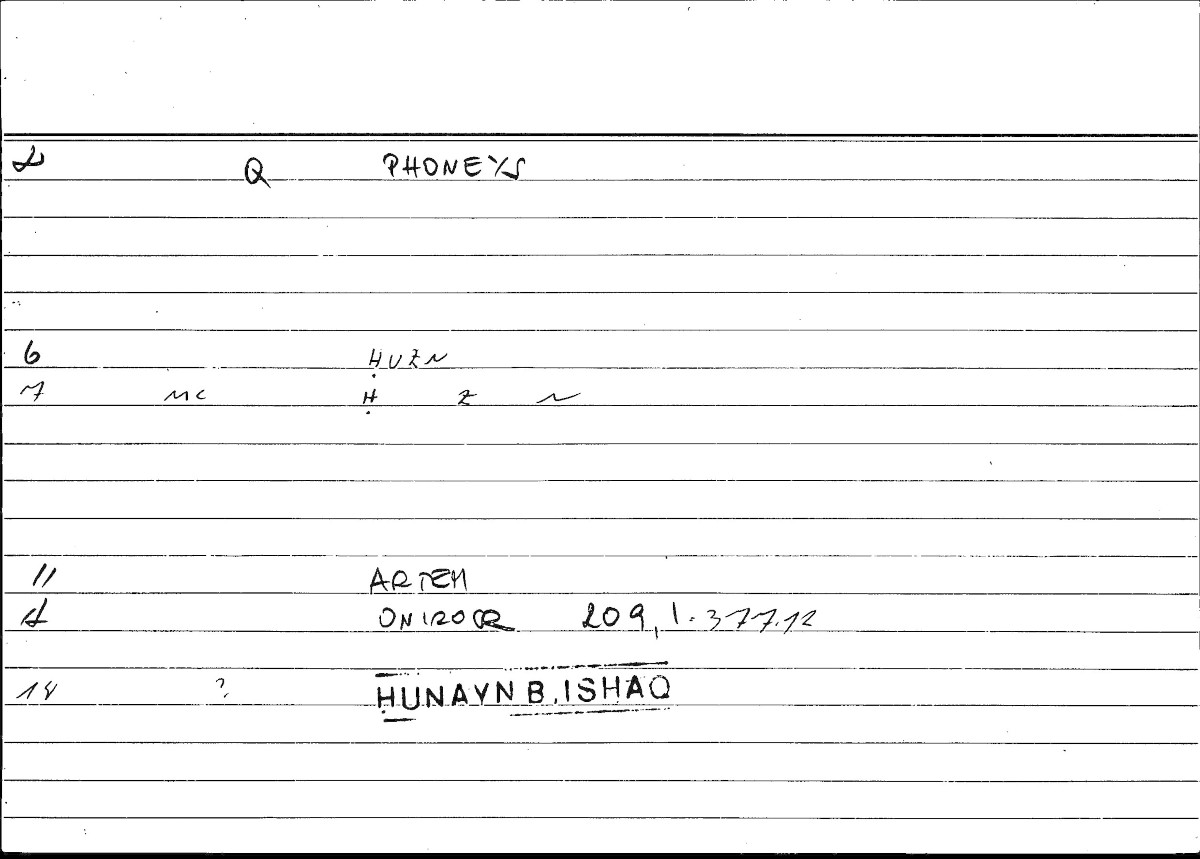 Q PHONEYS
6 ḤUZN
7 MC Ḥ Z N
11 ARTEM
ONIROCR 209, 1. 377.12
14 ? ḤUNAYN B. ISHAQ